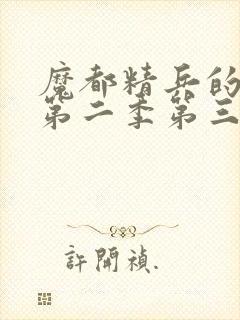 魔都精兵的
第二季第三
許開禎.